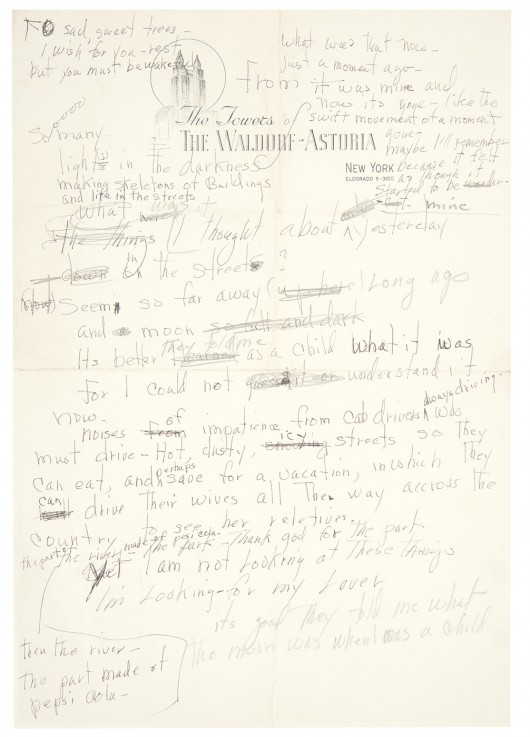 TO sad, sweet trees—
I wish for you—rest
but you must be wakeful
What was that now—
just a moment ago—
it was mine and
now its gone—like the
swift movement of a moment
gone—
maybe I'll remember
because it felt
as though it
started to be mine
From
The Towers of
THE WALDORF-ASTORIA
NEW YORK
ELDORADO 5-3100
So many
lights in the darkness
making skeletons of Buildings
and life in the streets
What was it
The things I thought about yesterday
down in the streets?
(now) Seems so far away (up here) Long ago
and moon so full and dark
Its better they told me as a child what it was
for I could not guess it or understand it
now.
noises of from impatience from Cab drivers always driving—who
must drive—Hot, dusty, icy streets so They
Can eat, and perhaps save for a vacation, in which They
can drive Their wives all The way accross The
country to see her reletives.
the part of the river—made of pepsi cola—The park—Thank god for the park
Yet I am not Looking at These Things
I'm Looking for my Lover
its good They told me what
the moon was when I was a child
then the river—
the part made of
pepsi cola—